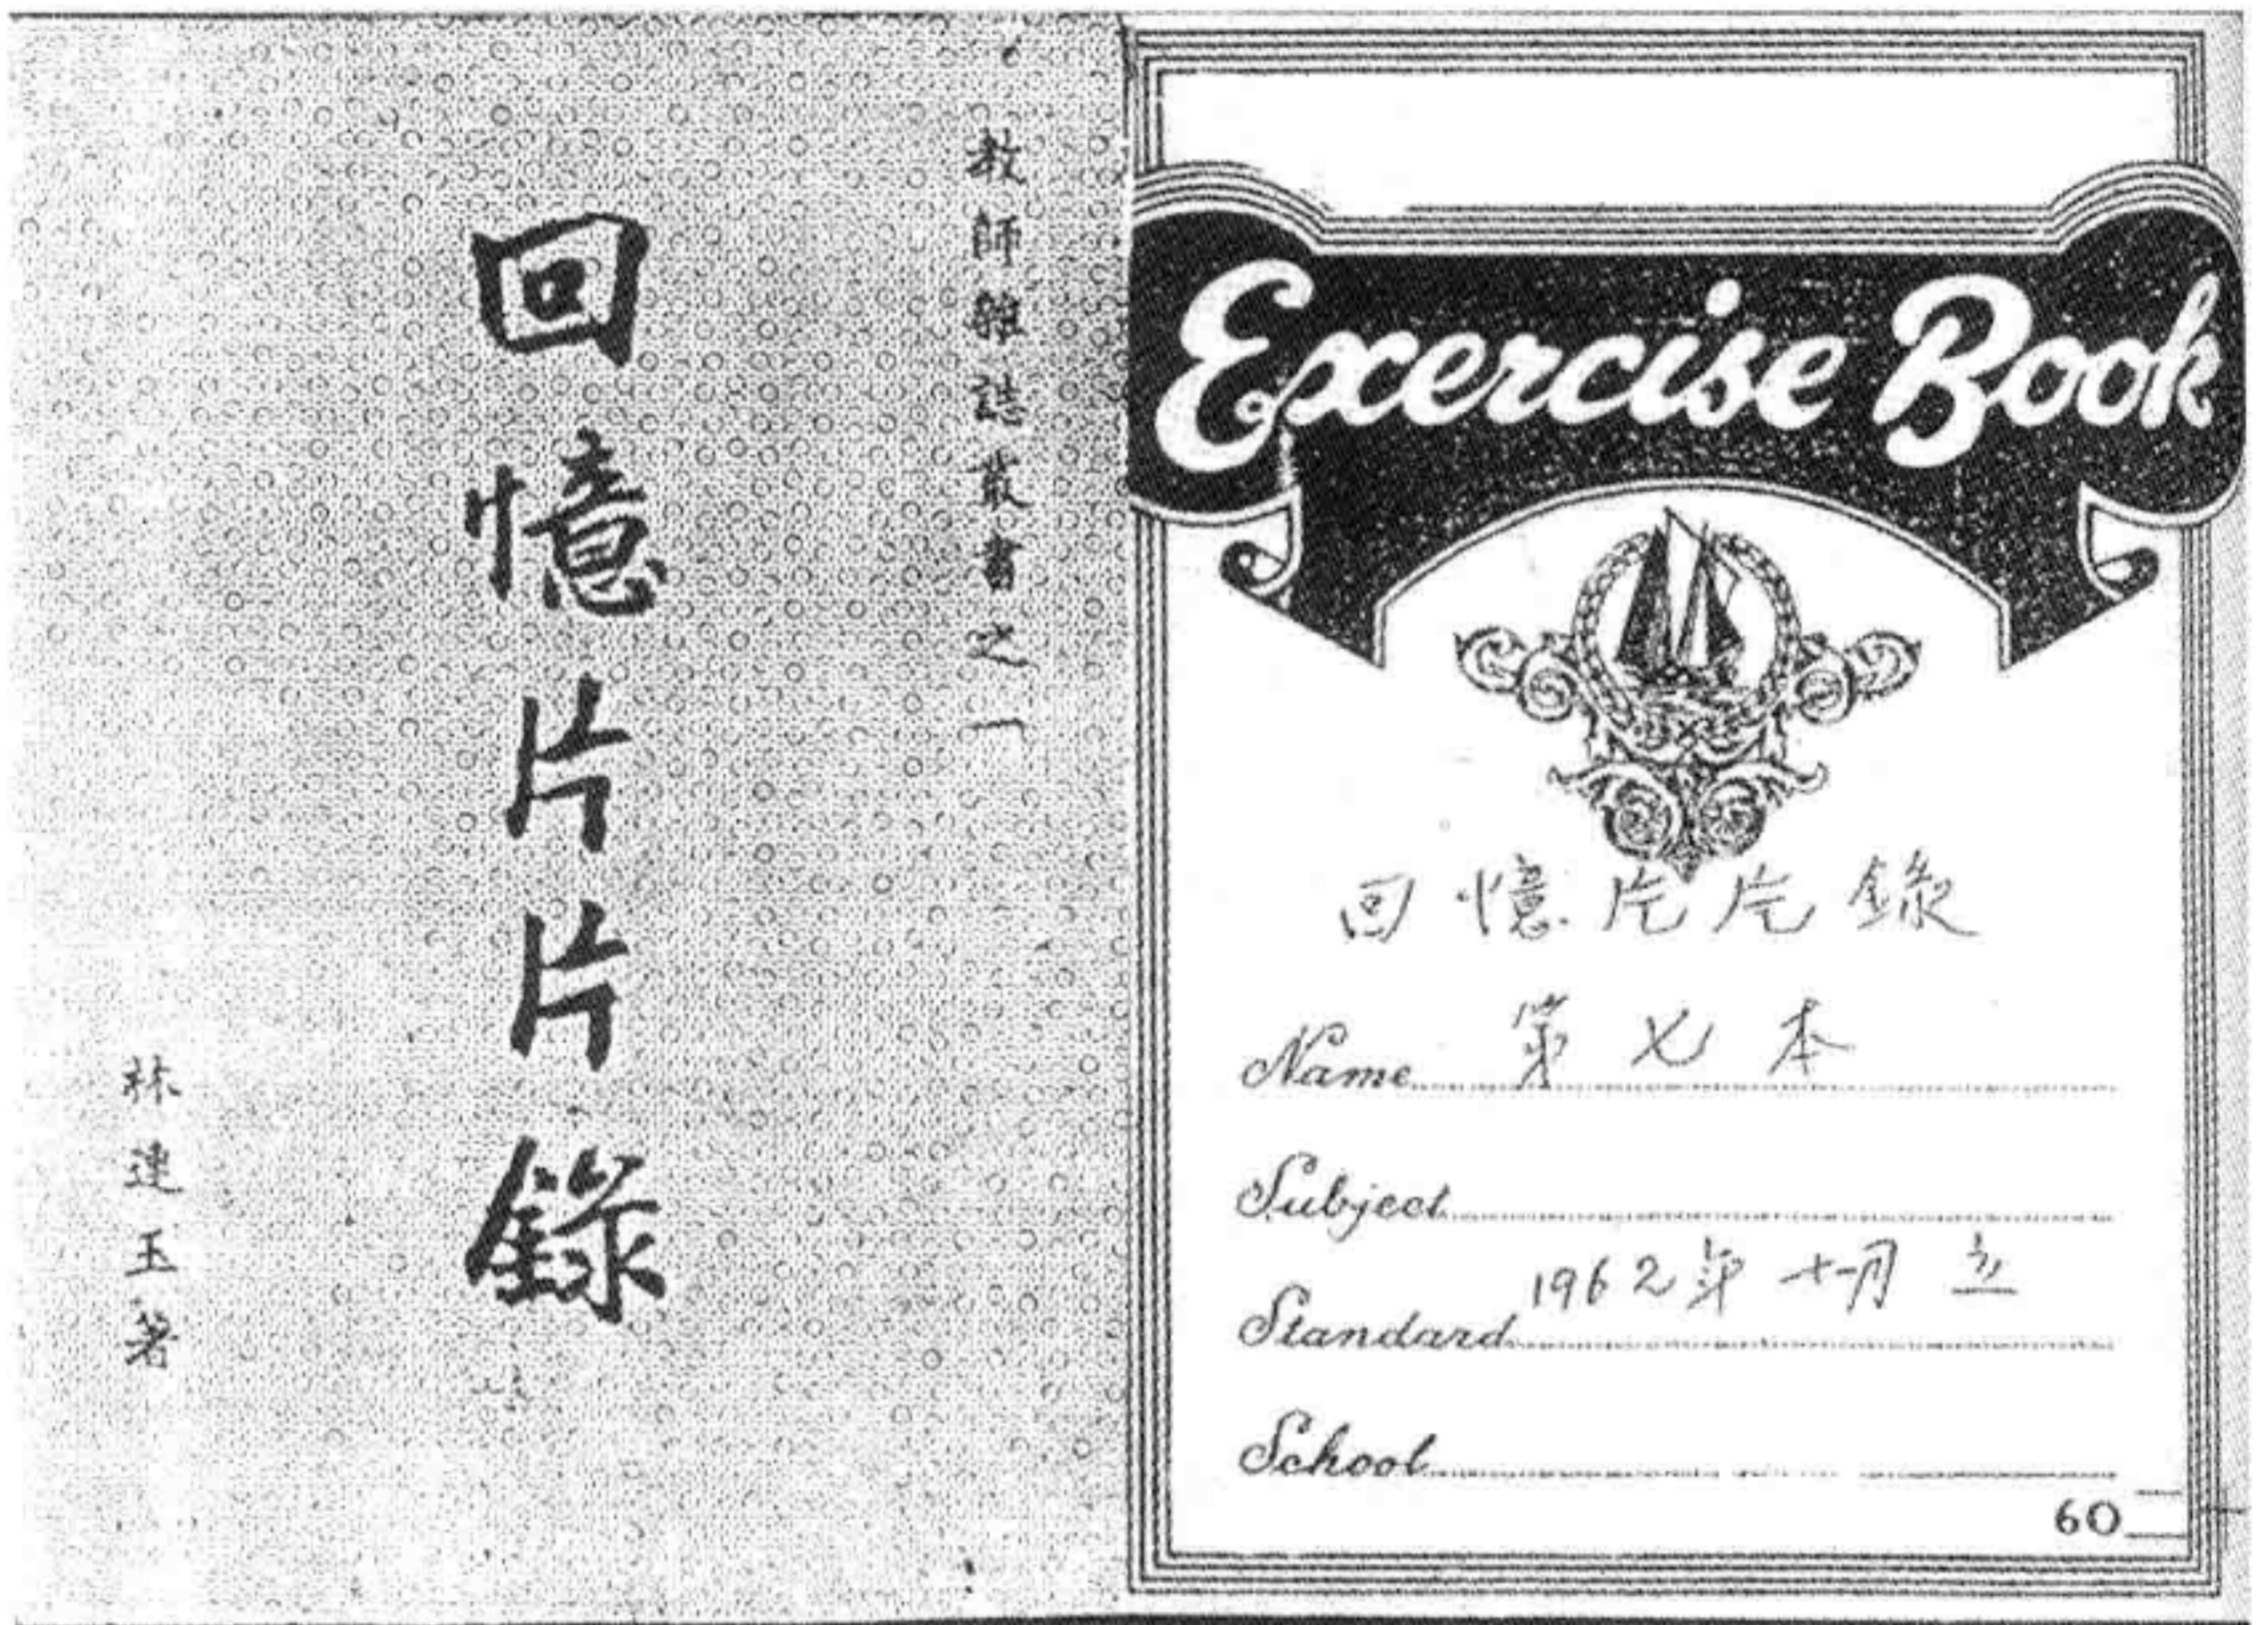 教師雜誌叢書之一
回憶片片錄
林連玉著
Exercise Book
回憶片片錄
Name 第七本
Subject
Standard 1962年十一月立
School
60